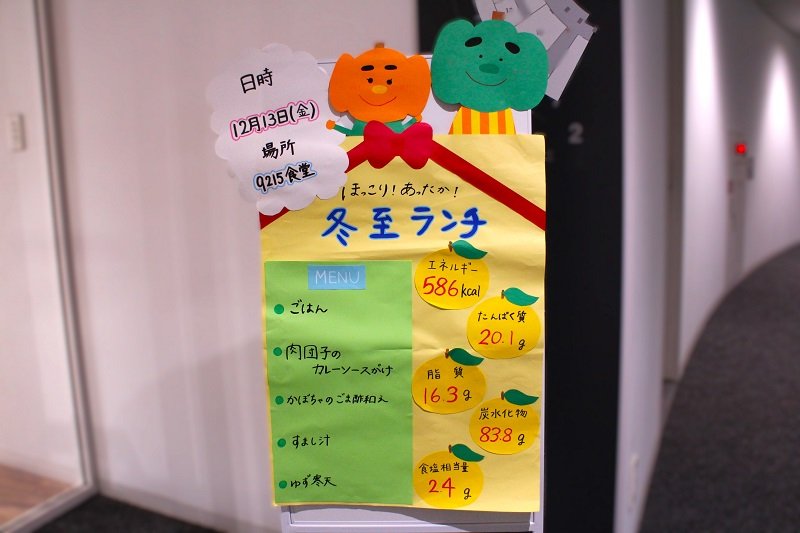 日時
12月13日(金)
場所
9215食堂
ほっこり!あったか!
冬至ランチ
MENU
ごはん
肉団子の
カレーソースがけ
かぼちゃのごま酢和え
すまし汁
ゆず寒天
エネルギー
586kcal
たんぱく質
20.1g
脂質
16.3g
炭水化物
83.8g
食塩相当量
2.4g
2